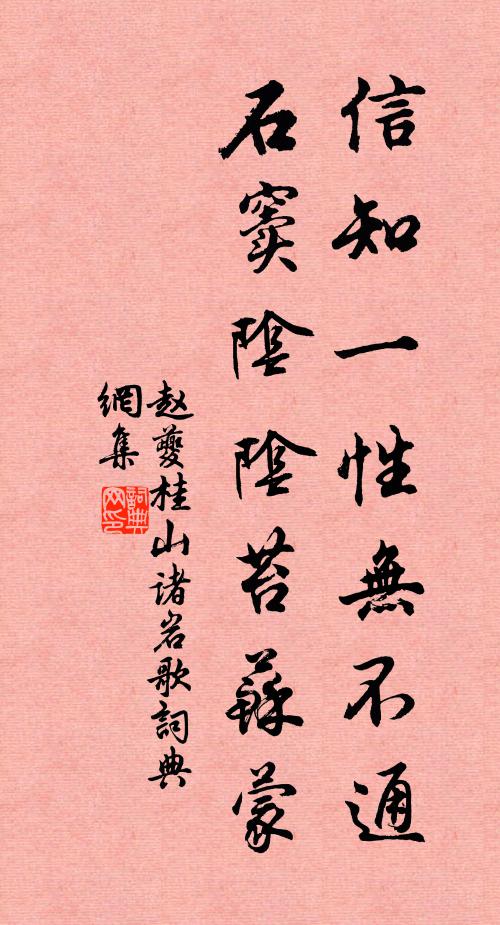 信知一性無不通
石竇陰陰苔蘚蒙
赵夔桂山诸岩歌詞典
網集
詞典网印